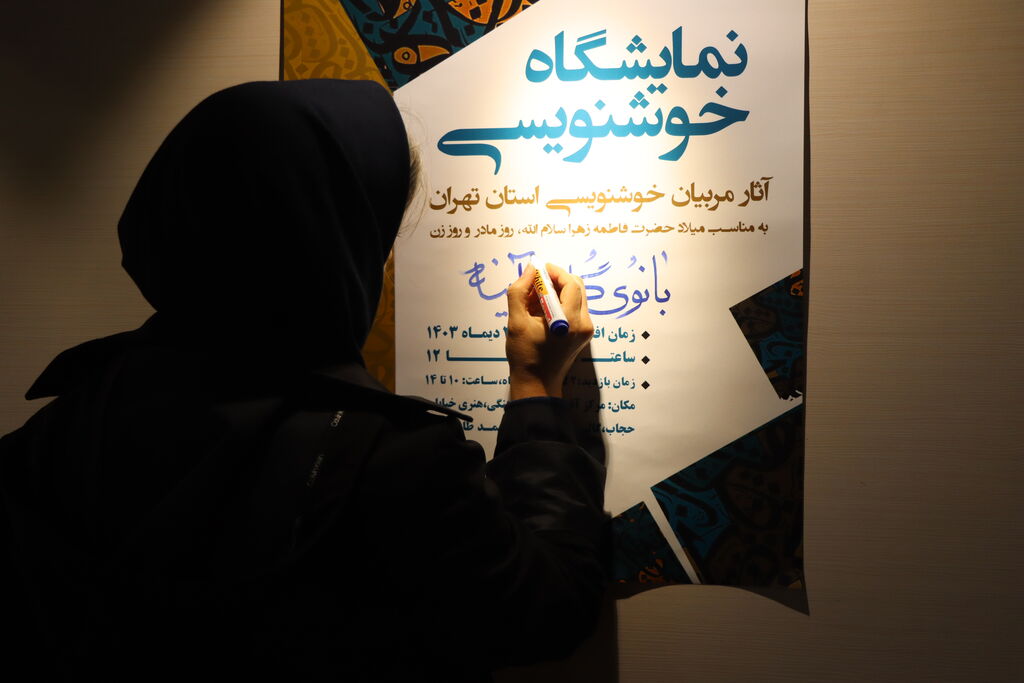 نمایشگاه
خوشنویسی
آثار مربیان خوشنویسی استان تهران
به مناسبت میلاد حضرت فاطمه زهرا سلام الله، روز مادر و روز زن
بانوی
زمان دیماه ۱۴۰۳
ساعت ۱۲
زمان بازدید: ساعت: ۱۰ تا ۱۴
مکان: مرکز هنری خیابان
حجاب،